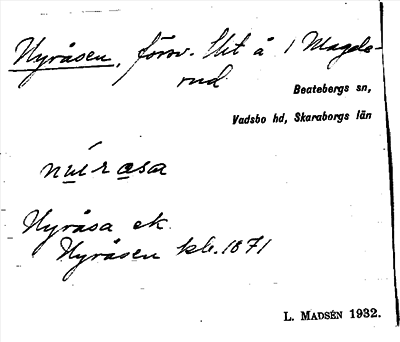 Nyråsen, försv. llt å 1 Magde-
rud
Beatebergs sn,
Vadsbo hd, Skaraborgs län
nuirasa
Nyråsa ek.
Nyråsen kb. 1871
L. MADSÉN 1932.